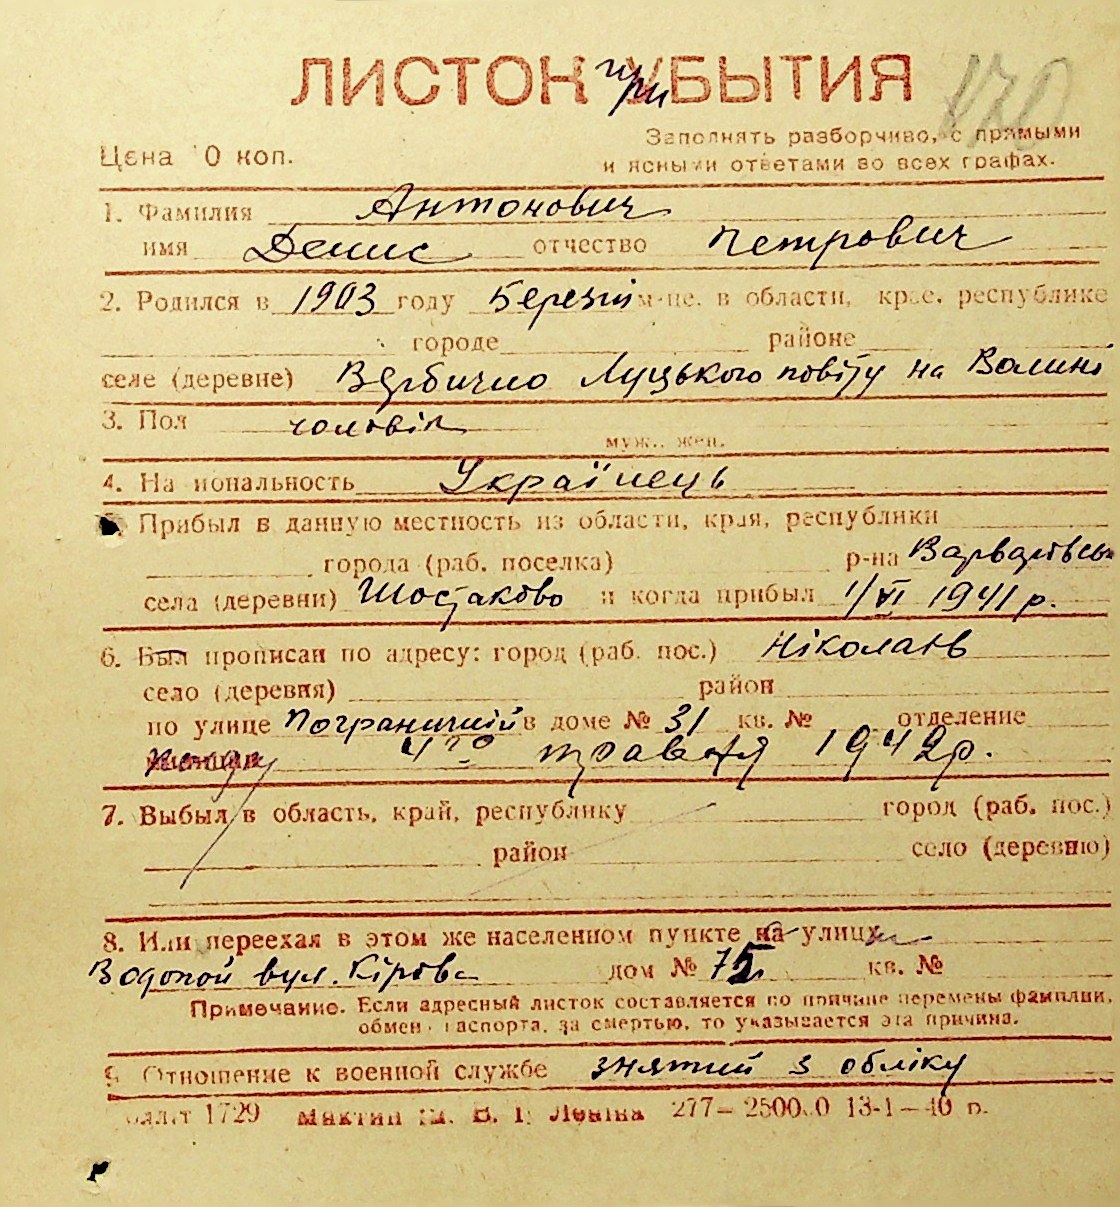 ЛИСТОК при УБЫТИЯ
170
Цена 10 коп.
Заполнять разборчиво, с прямыми
и ясными ответами во всех графах.
1. Фамилия Антонович
имя Денис отчество Петрович
2. Родился в 1903 году Березні м-це. в области, крае, республике
городе районе
селе (деревне) Вербично Луцького повіту на Волині
3. Пол чоловік
муж., жен.
4. Национальность Українець
5. Прибыл в данную местность из области, края, республики
города (раб. поселка) р-на Варварівськ
села (деревни) Шостаково и когда прибыл 1/VI 1941 р.
6. Был прописан по адресу: город (раб. пос.) Ніколаїв
село (деревня) район
по улице Пограничній в доме № 31 кв. № отделение
милиции 4го травня 1942 р.
7. Выбыл в область, край, республику город (раб. пос.)
район село (деревню)
8. Или переехал в этом же населенном пункте на улицу
Водопой вул. Кірова дом № 75 кв. №
Примечание. Если адресный листок составляется по причине перемены фамилии,
обмен паспорта, за смертью, то указывается эта причина.
9. Отношение к военной службе знятий з обліку
1729 им. В. И. Леніна 277— 250000 13-1—40 р.